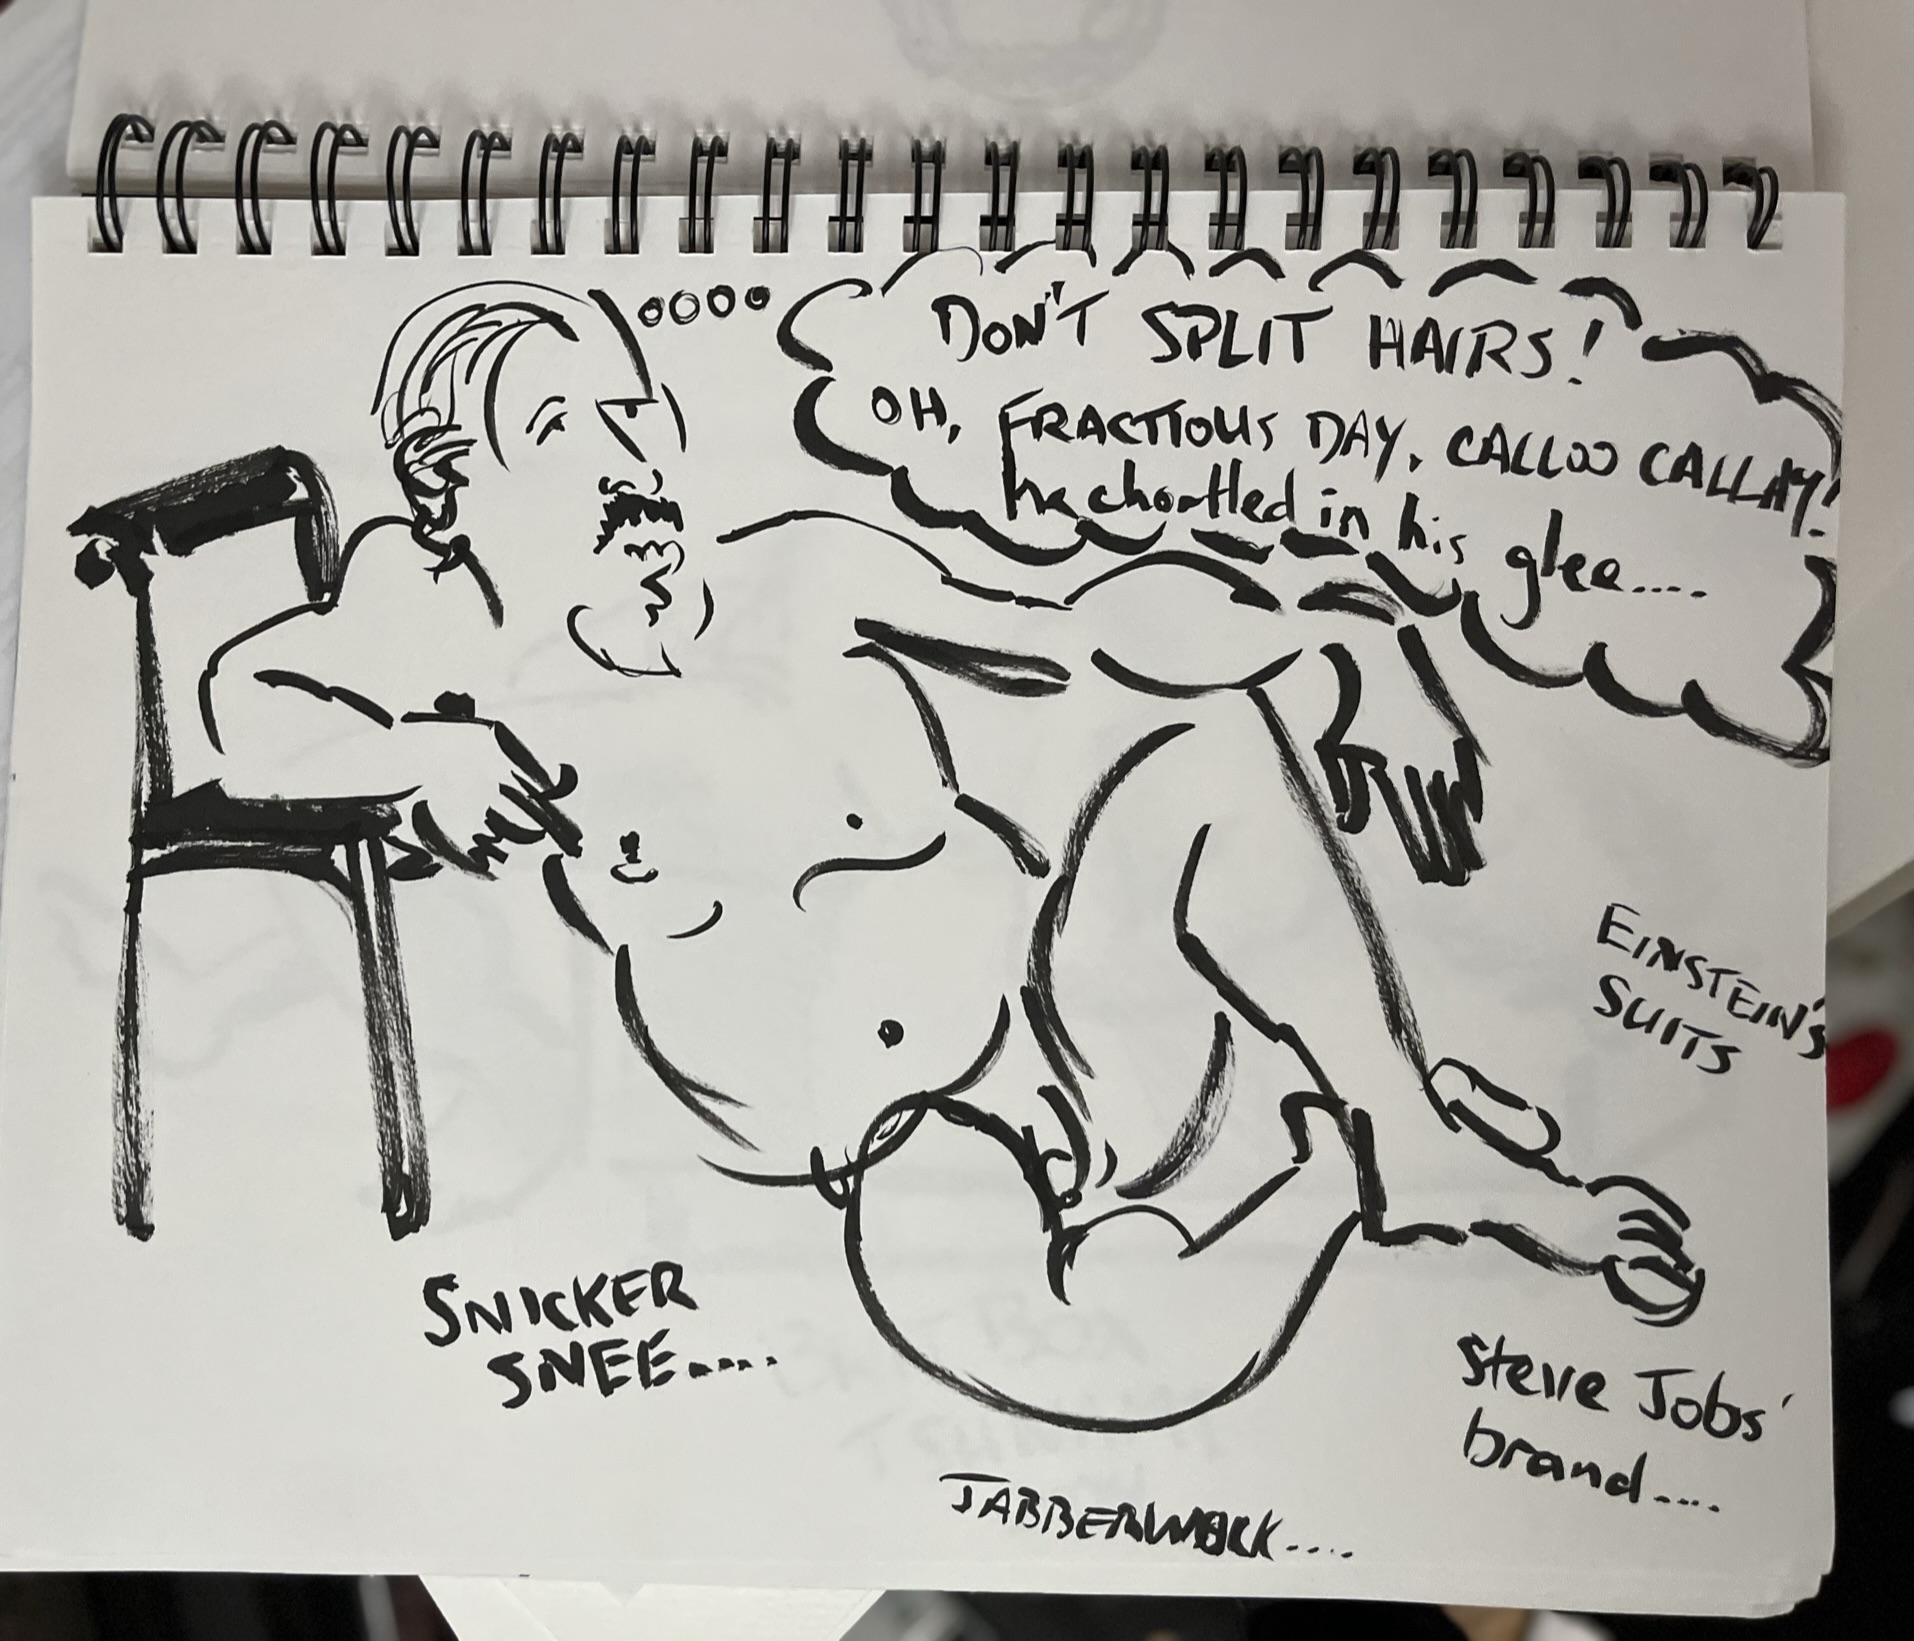 DON'T SPLIT HAIRS!
OH, FRACTIOUS DAY, CALLOO CALLAY!
he chortled in his glee....
EINSTEIN'S
SUITS
SNICKER
SNEE....
Steve Jobs'
brand....
JABBERWOCK....